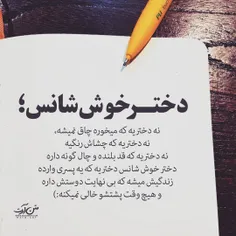 دختر خوش شانس؛
نه دختریه که میخوره چاق نمیشه،
نه دختریه که چشاش رنگیه
نه دختریه که قد بلنده و چال گونه داره
دختر خوش شانس دختریه که یه پسری وارده
زندگیش میشه که بی نهایت دوستش داره
و هیچ وقت پشتشو خالی نمیکنه:)